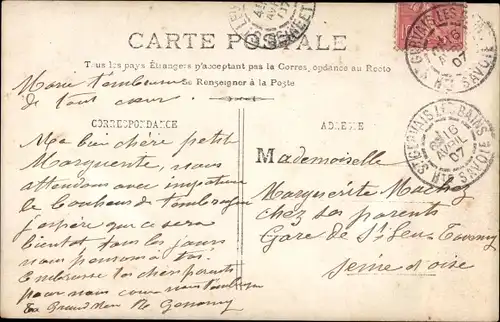 CARTE POSTALE
Tous les pays Étrangers n'acceptant pas la Correspondance au Recto
Se Renseigner à la Poste
de tout cœur
CORRESPONDANCE
Ma bien chère petite
Marguerite, nous
attendons avec impatience
le bonheur de
j'espère que ce sera
bientôt tous les jours
nous pensons à toi.
Embrasse tes chers parents
pour nous
Ta Grand Mère
ADRESSE
Mademoiselle
Marguerite
chez ses parents
Gare de St Leu Taverny
Seine et oise
ST GERVAIS-LES-BAINS
16
AVRIL
07
HTE SAVOIE
ST GERVAIS-LES-BAINS
16
AVRIL
07
HTE SAVOIE